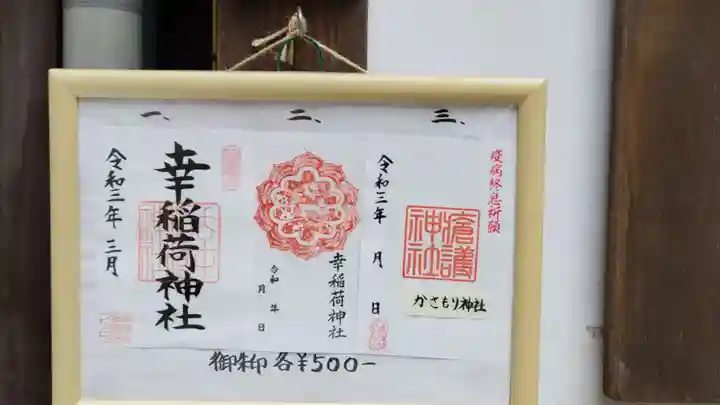 一、
二、
三、
令和三年 三月
幸稲荷神社
令和 年 月 日
幸稲荷神社
令和三年 月 日
疫病終息祈願
瘡護神社
かさもり神社
御朱印 各¥500-